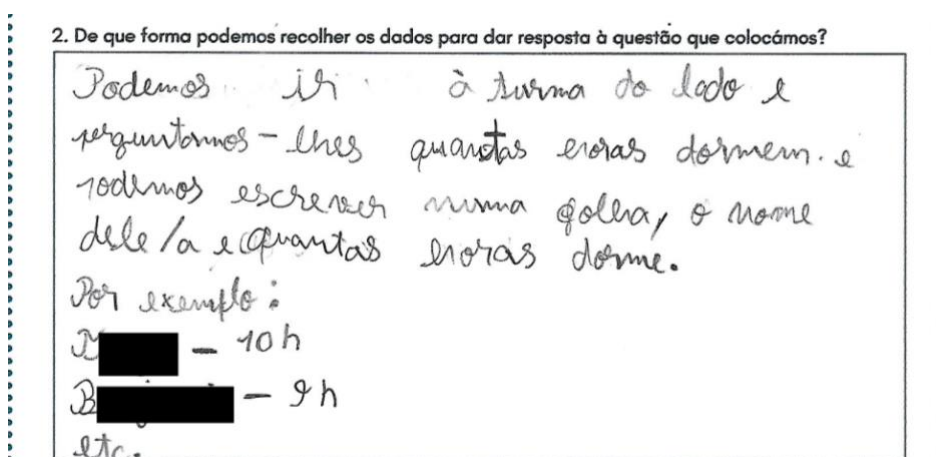 2. De que forma podemos recolher os dados para dar resposta à questão que colocámos?
Podemos ir à turma do lado e
perguntamos-lhes quantas horas dormem. e
podemos escrever numa folha, o nome
dele/a e quantas horas dorme.
Por exemplo:
- 10h
B - 9h
etc.